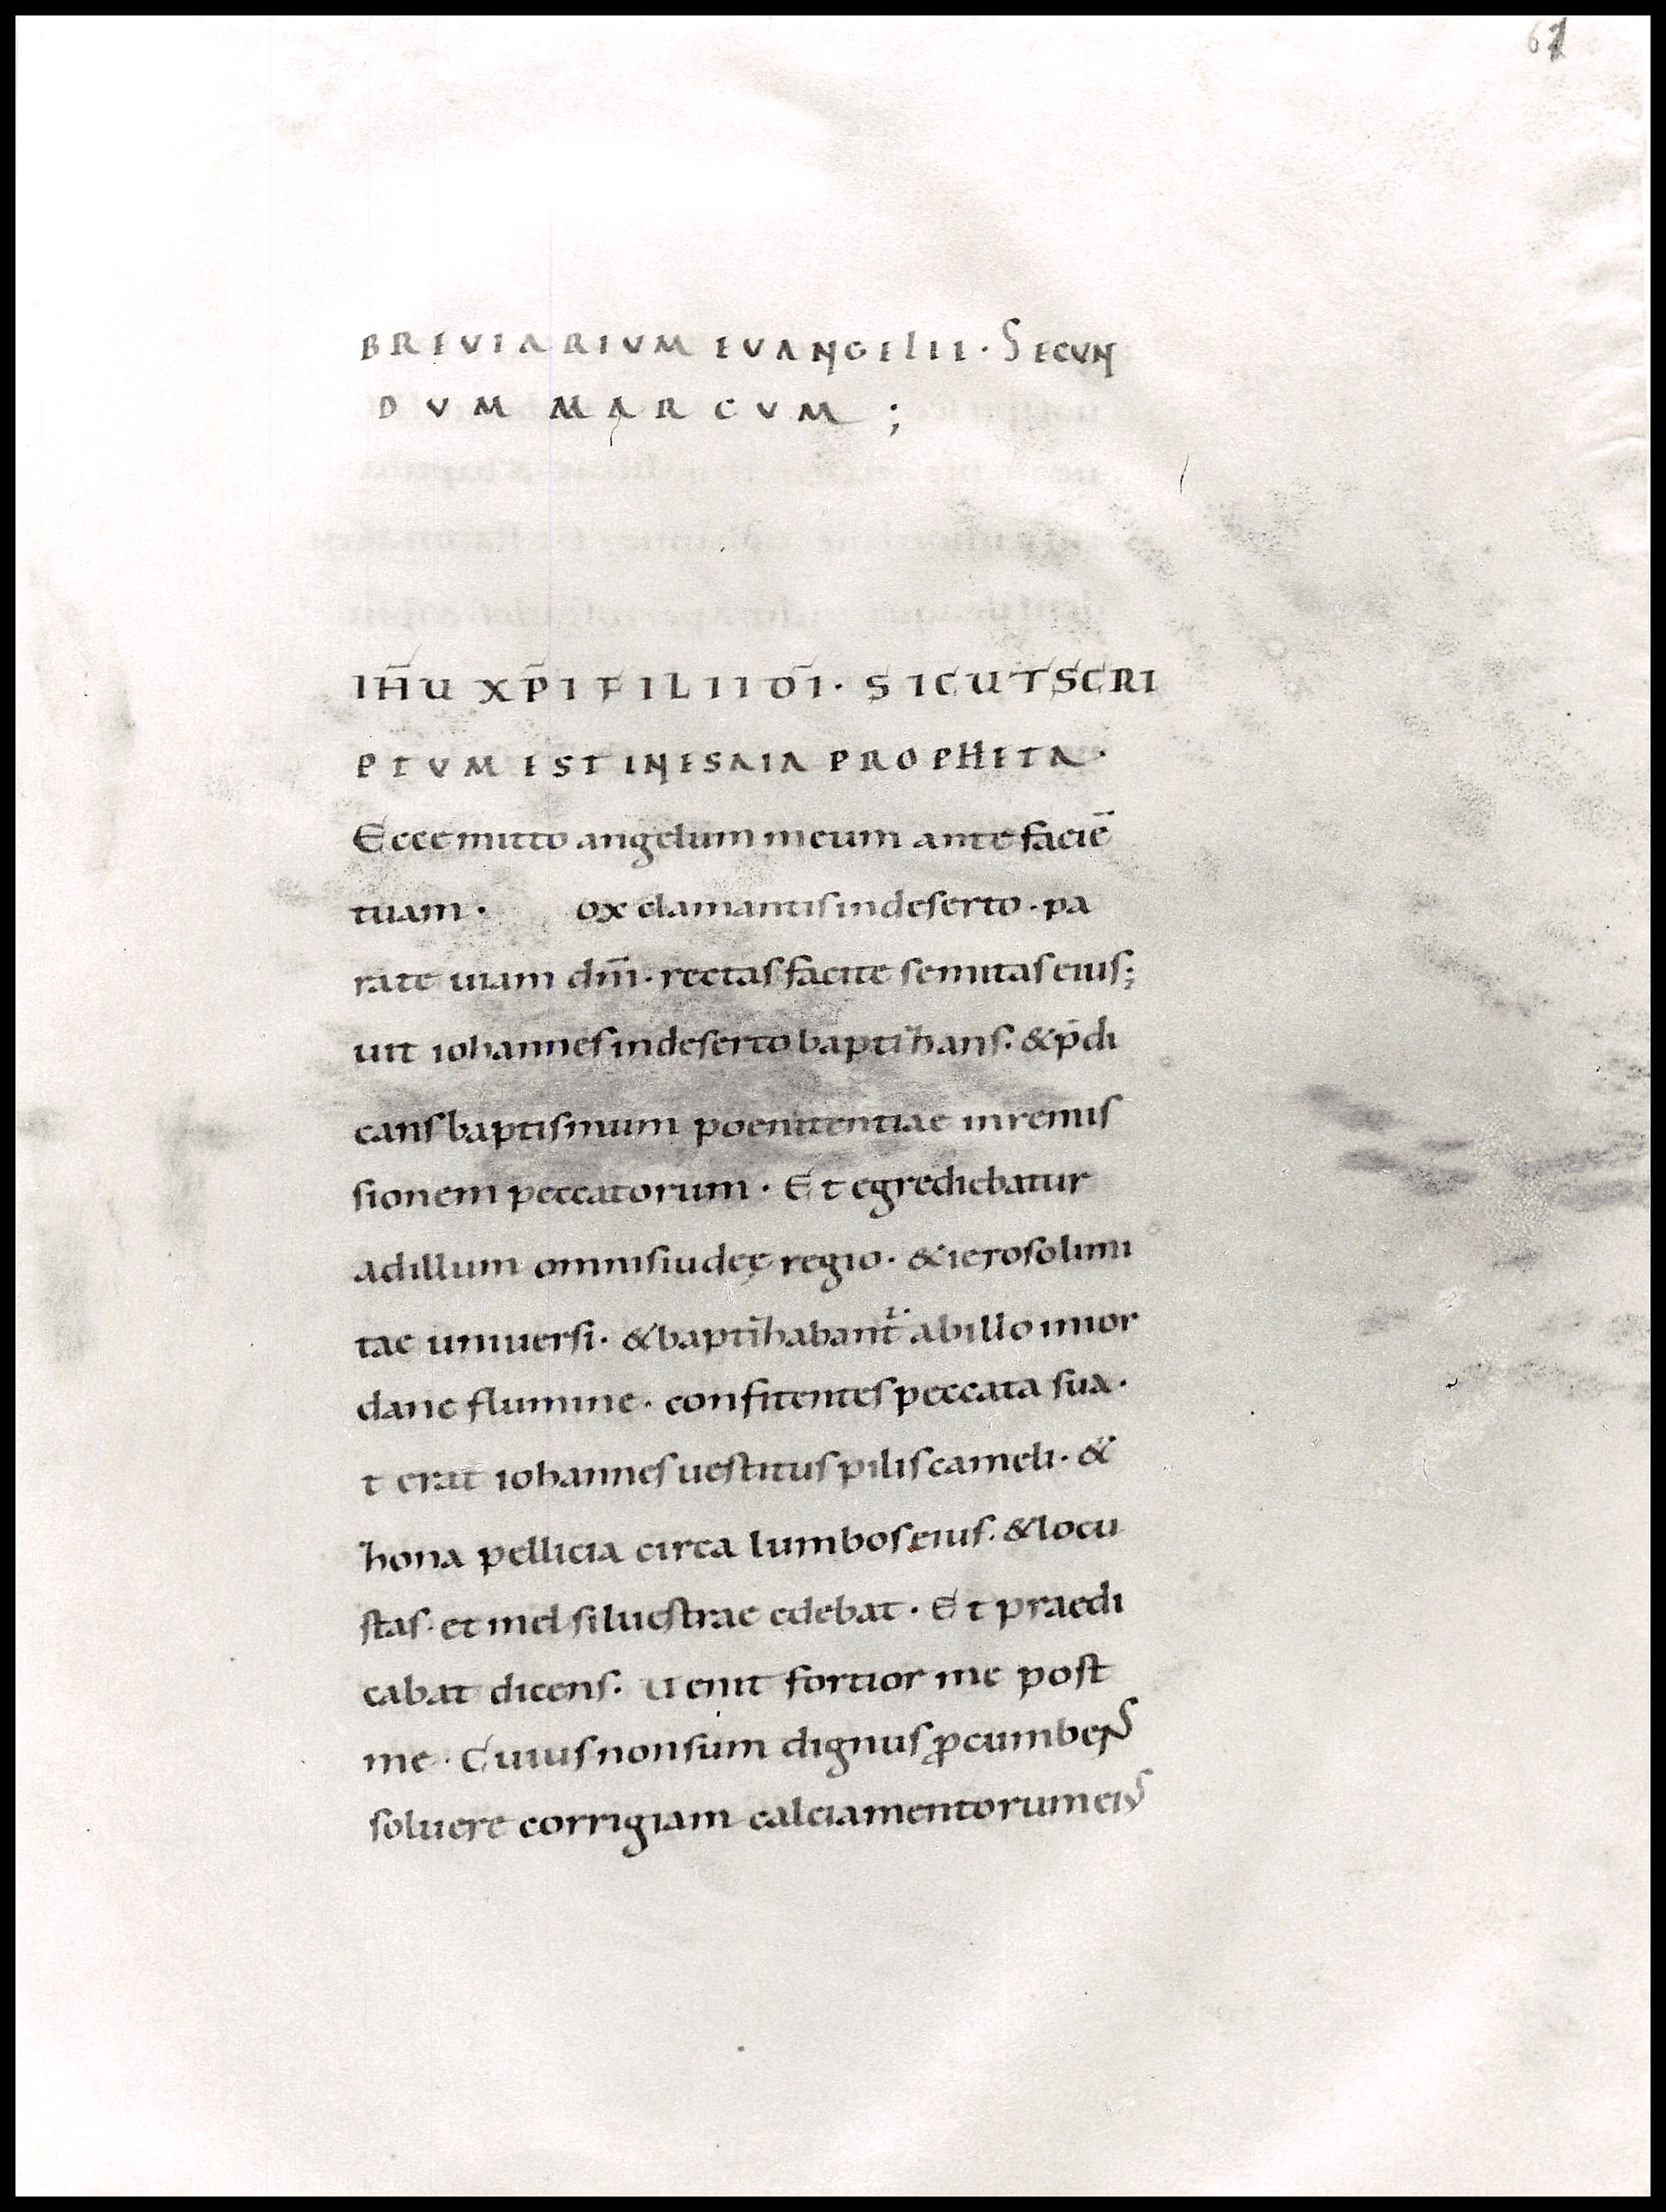 61
BREVIARIVM EVANGELII · SECVN
DVM MARCVM ;
IH̅U XP̅I FILII DI̅ · SICUT SCRI
PTVM EST IN ESAIA PROPHETA ·
Ecce mitto angelum meum ante facie̅
tuam · ox clamantis in deserto · pa
rate uiam dn̅i · rectas facite semitas eius ;
uit iohannes in deserto baptizans · & p̅di
cans baptismum poenitentiae in remis
sionem peccatorum · Et egrediebatur
ad illum omnis iudeę regio · & ierosolimi
tae uniuersi · & baptizabant᷑ ab illo in ior
dane flumine · confitentes peccata sua ·
t erat iohannes uestitus pilis cameli · &
zona pellicia circa lumbos eius · & locu
stas · et mel siluestrae edebat · Et praedi
cabat dicens · Uenit fortior me post
me · Cuius non sum dignus ꝓcumbens
soluere corrigiam calciamentorum eius